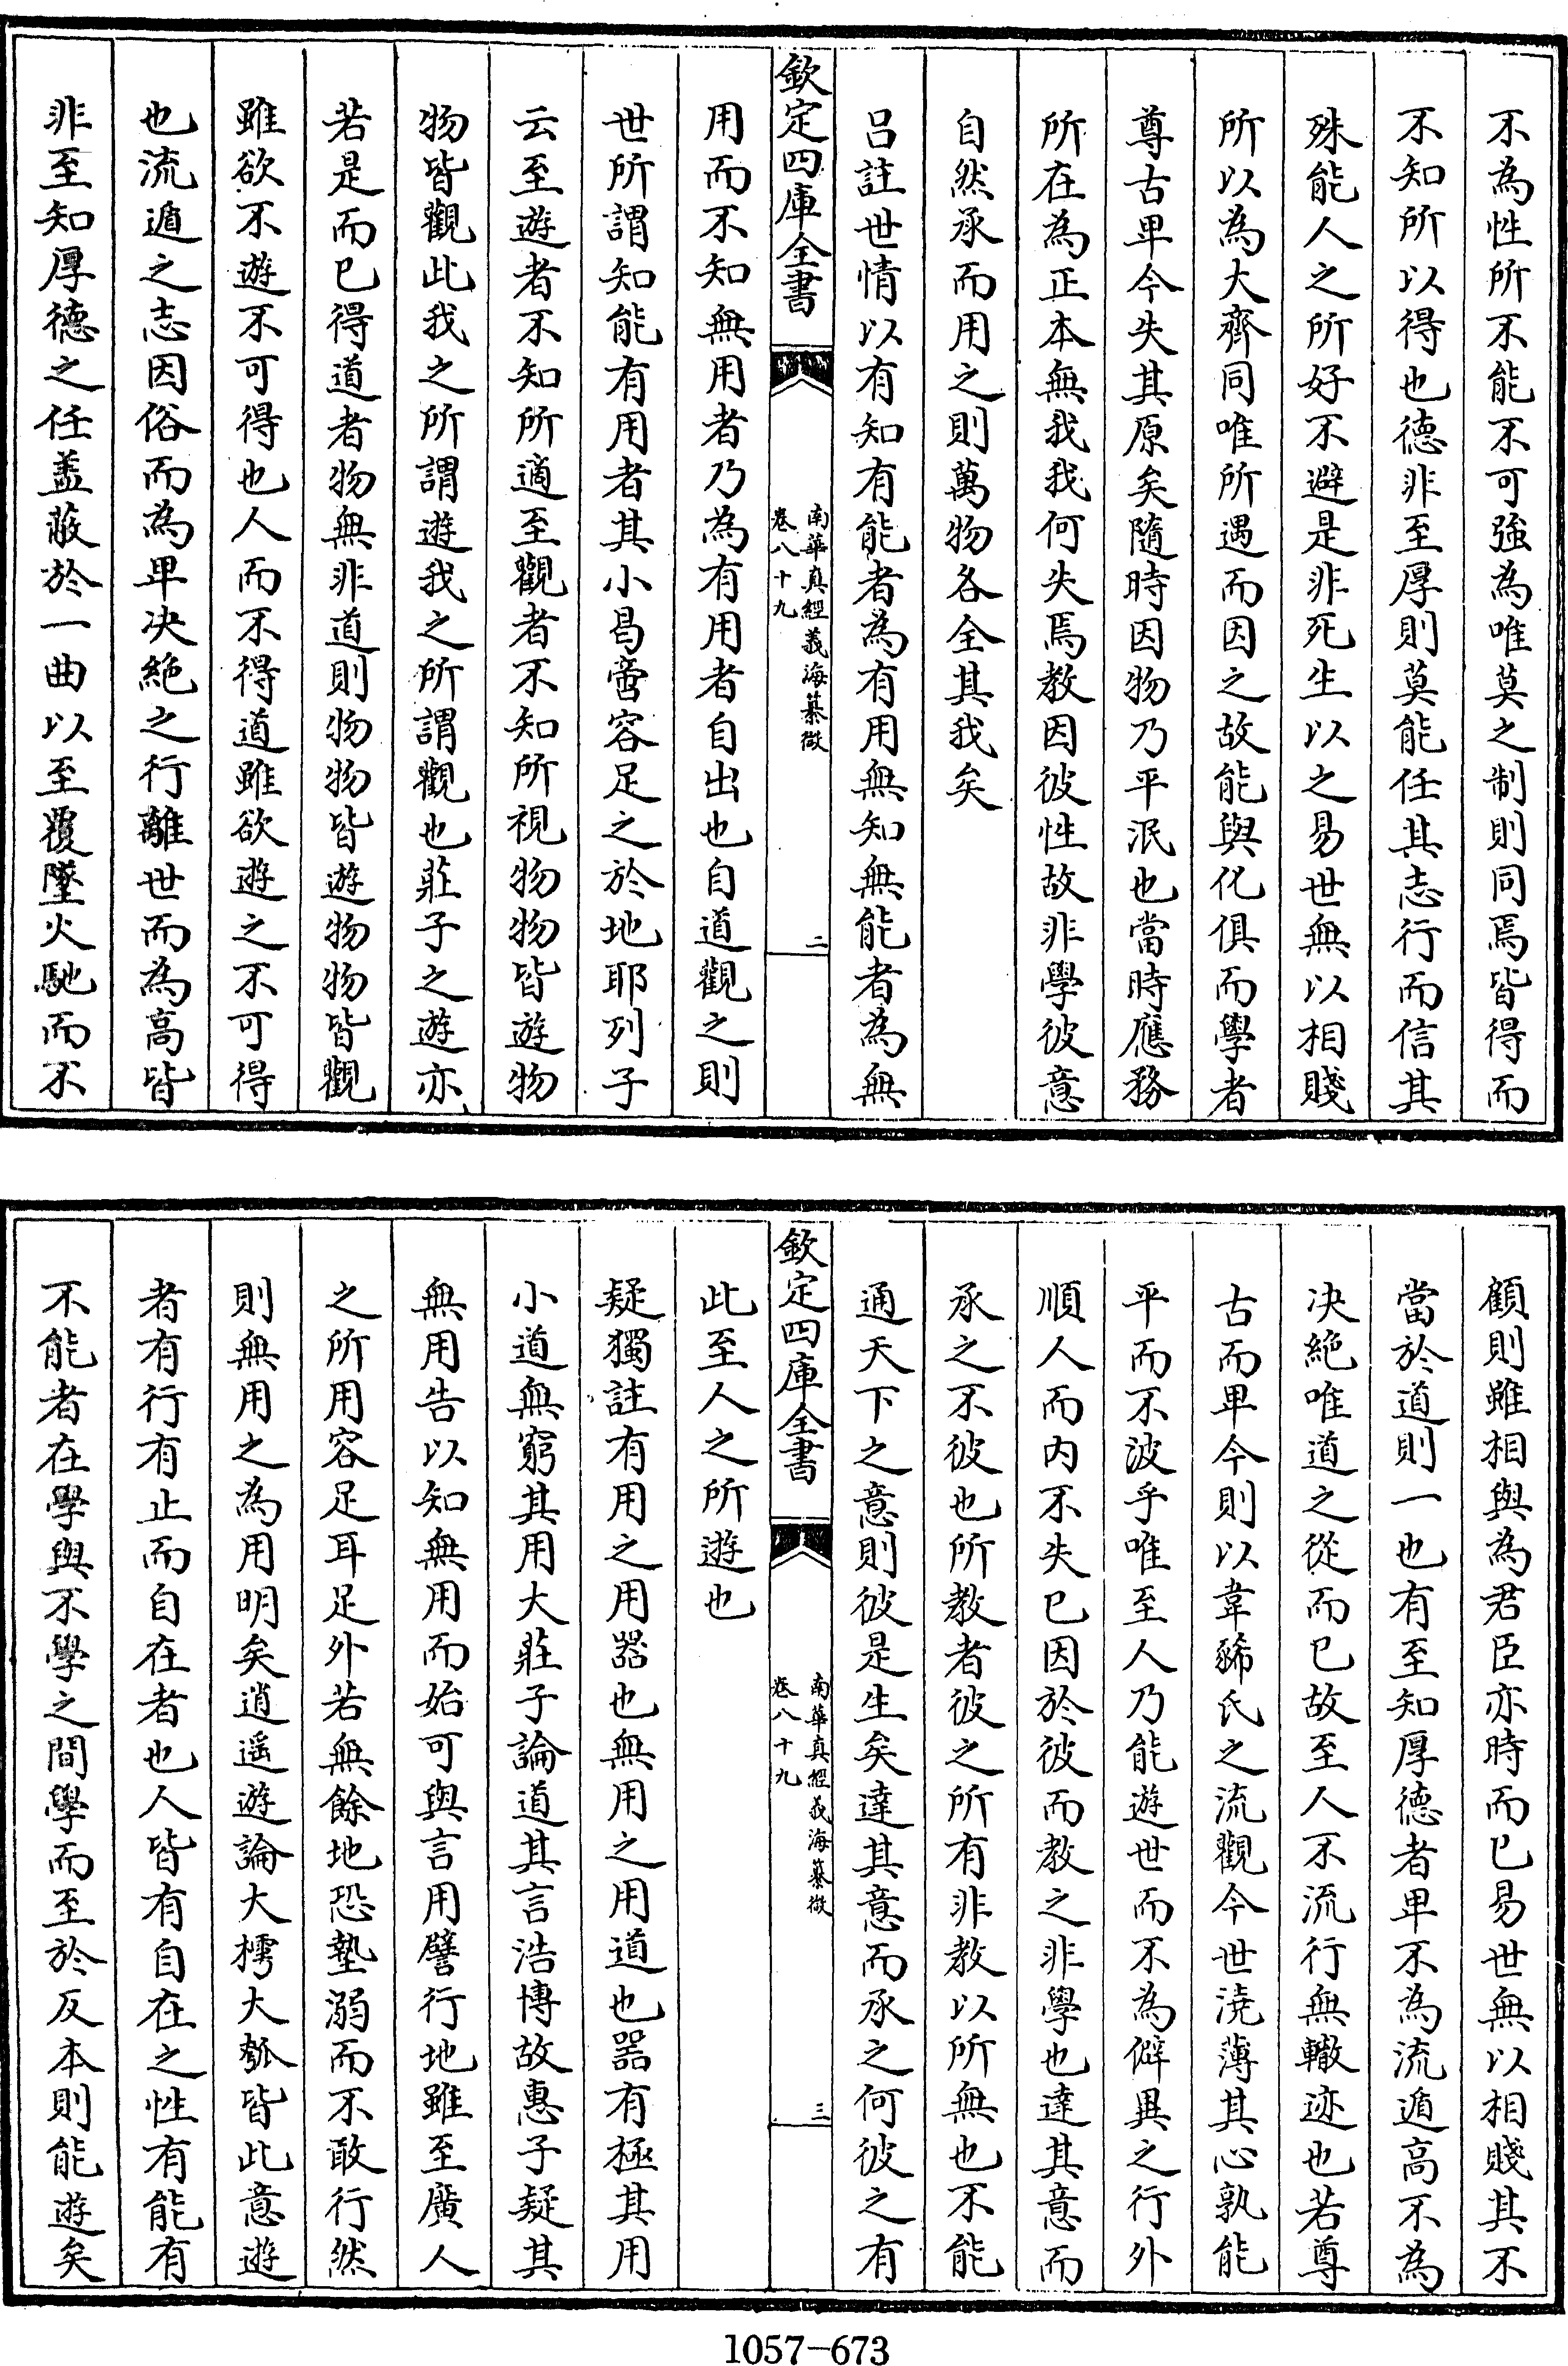 不為性所不能不可強為唯莫之制則同焉皆得而
不知所以得也德非至厚則莫能任其志行而信其
殊能人之所好不避是非死生以之易世無以相賤
所以為大齊同唯所遇而因之故能與化俱而學者
尊古卑今失其原矣隨時因物乃平泯也當時應務
所在為正本無我我何失焉教因彼性故非學彼意
自然承而用之則萬物各全其我矣
呂註世情以有知有能者為有用無知無能者為無
欽定四庫全書
南華真經義海纂微
卷八十九
二
用而不知無用者乃為有用者自出也自道觀之則
世所謂知能有用者其小曷啻容足之於地耶列子
云至遊者不知所適至觀者不知所視物物皆遊物
物皆觀此我之所謂遊我之所謂觀也莊子之遊亦
若是而已得道者物無非道則物物皆遊物物皆觀
雖欲不遊不可得也人而不得道雖欲遊之不可得
也流遁之志因俗而為卑决絶之行離世而為高皆
非至知厚德之任葢蔽於一曲以至覆墜火馳而不
顧則雖相與為君臣亦時而已易世無以相賤其不
當於道則一也有至知厚德者卑不為流遁高不為
决絶唯道之從而已故至人不流行無轍迹也若尊
古而卑今則以韋豨氏之流觀今世澆薄其心孰能
平而不波乎唯至人乃能遊世而不為僻異之行外
順人而内不失已因於彼而教之非學也達其意而
承之不彼也所教者彼之所有非教以所無也不能
通天下之意則彼是生矣達其意而承之何彼之有
欽定四庫全書
南華真經義海纂微
卷八十九
三
此至人之所遊也
疑獨註有用之用器也無用之用道也器有極其用
小道無窮其用大莊子論道其言浩博故惠子疑其
無用告以知無用而始可與言用譬行地雖至廣人
之所用容足耳足外若無餘地恐墊溺而不敢行然
則無用之為用明矣逍遥遊論大樗大瓠皆此意遊
者有行有止而自在者也人皆有自在之性有能有
不能者在學與不學之間學而至於反本則能遊矣
1057-673